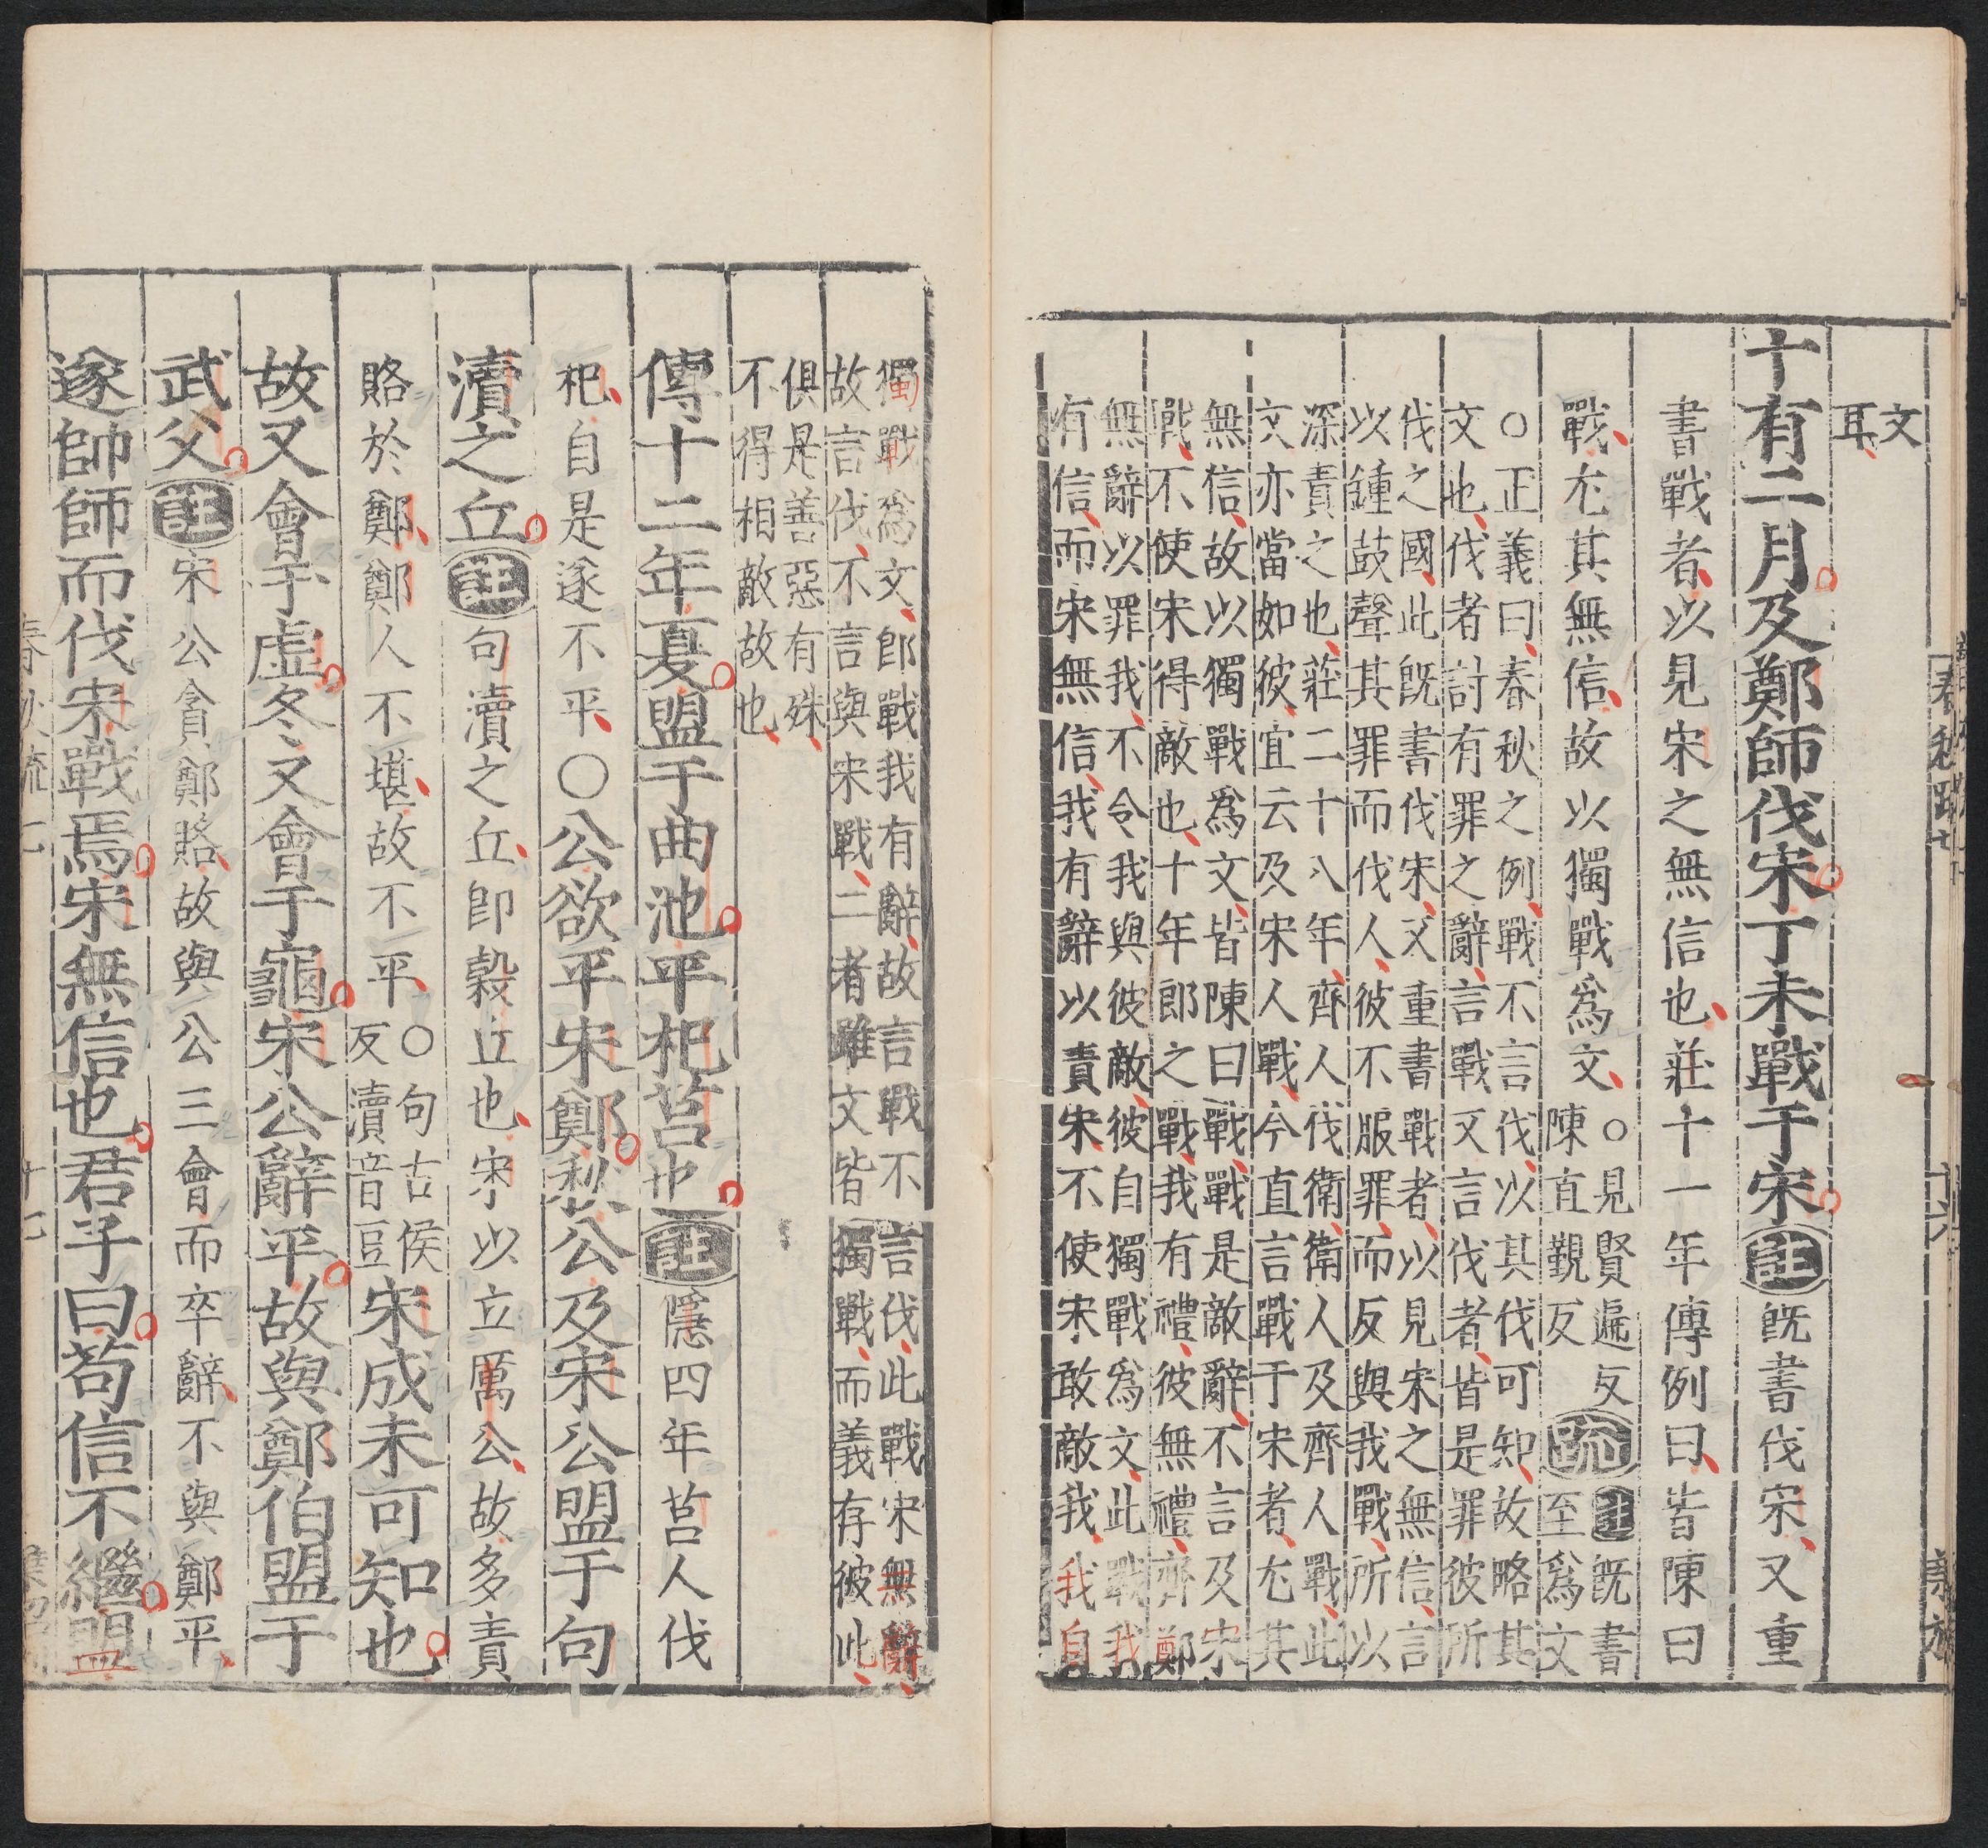 文
耳
十有二月及鄭師伐宋丁未戰于宋註既書伐宋又重
書戰者以見宋之無信也莊十一年傳例曰皆陳曰
戰尤其無信故以獨戰爲文
○見賢遍反
陳直覲反
疏
註既書
至爲文
○正義曰春秋之例戰不言伐以其伐可知故略其
文也伐者討有罪之辭言戰又言伐者皆是罪彼所
伐之國此既書伐宋又重書戰者以見宋之無信言
以鍾鼓聲其罪而伐人彼不服罪而反與我戰所以
深責之也莊二十八年齊人伐衛衛人及齊人戰此
文亦當如彼宜云及宋人戰今直言戰于宋者尤其
無信故以獨戰爲文皆陳曰戰戰是敵辭不言及宋
戰不使宋得敵也十年郎之戰我有禮彼無禮齊鄭
無辭以罪我不令我與彼敵彼自獨戰爲文此戰我
有信而宋無信我有辭以責宋不使宋敢敵我我自
獨戰爲文郎戰我有辭故言戰不言伐此戰宋無辭
故言伐不言與宋戰二者雖文皆獨戰而義存彼此
俱是善惡有殊
不得相敵故也
傳十二年夏盟于曲池平杞莒也註隱四年莒人伐
杞自是遂不平○公欲平宋鄭秋公及宋公盟于句
瀆之丘註句瀆之丘即穀丘也宋以立厲公故多責
賂於鄭鄭人不堪故不平
○句古侯
反瀆音豆
宋成未可知也
故又會于虛冬又會于龜宋公辭平故與鄭伯盟于
武父註宋公貪鄭賂故與公三會而卒辭不與鄭平
遂帥師而伐宋戰焉宋無信也君子曰苟信不繼盟